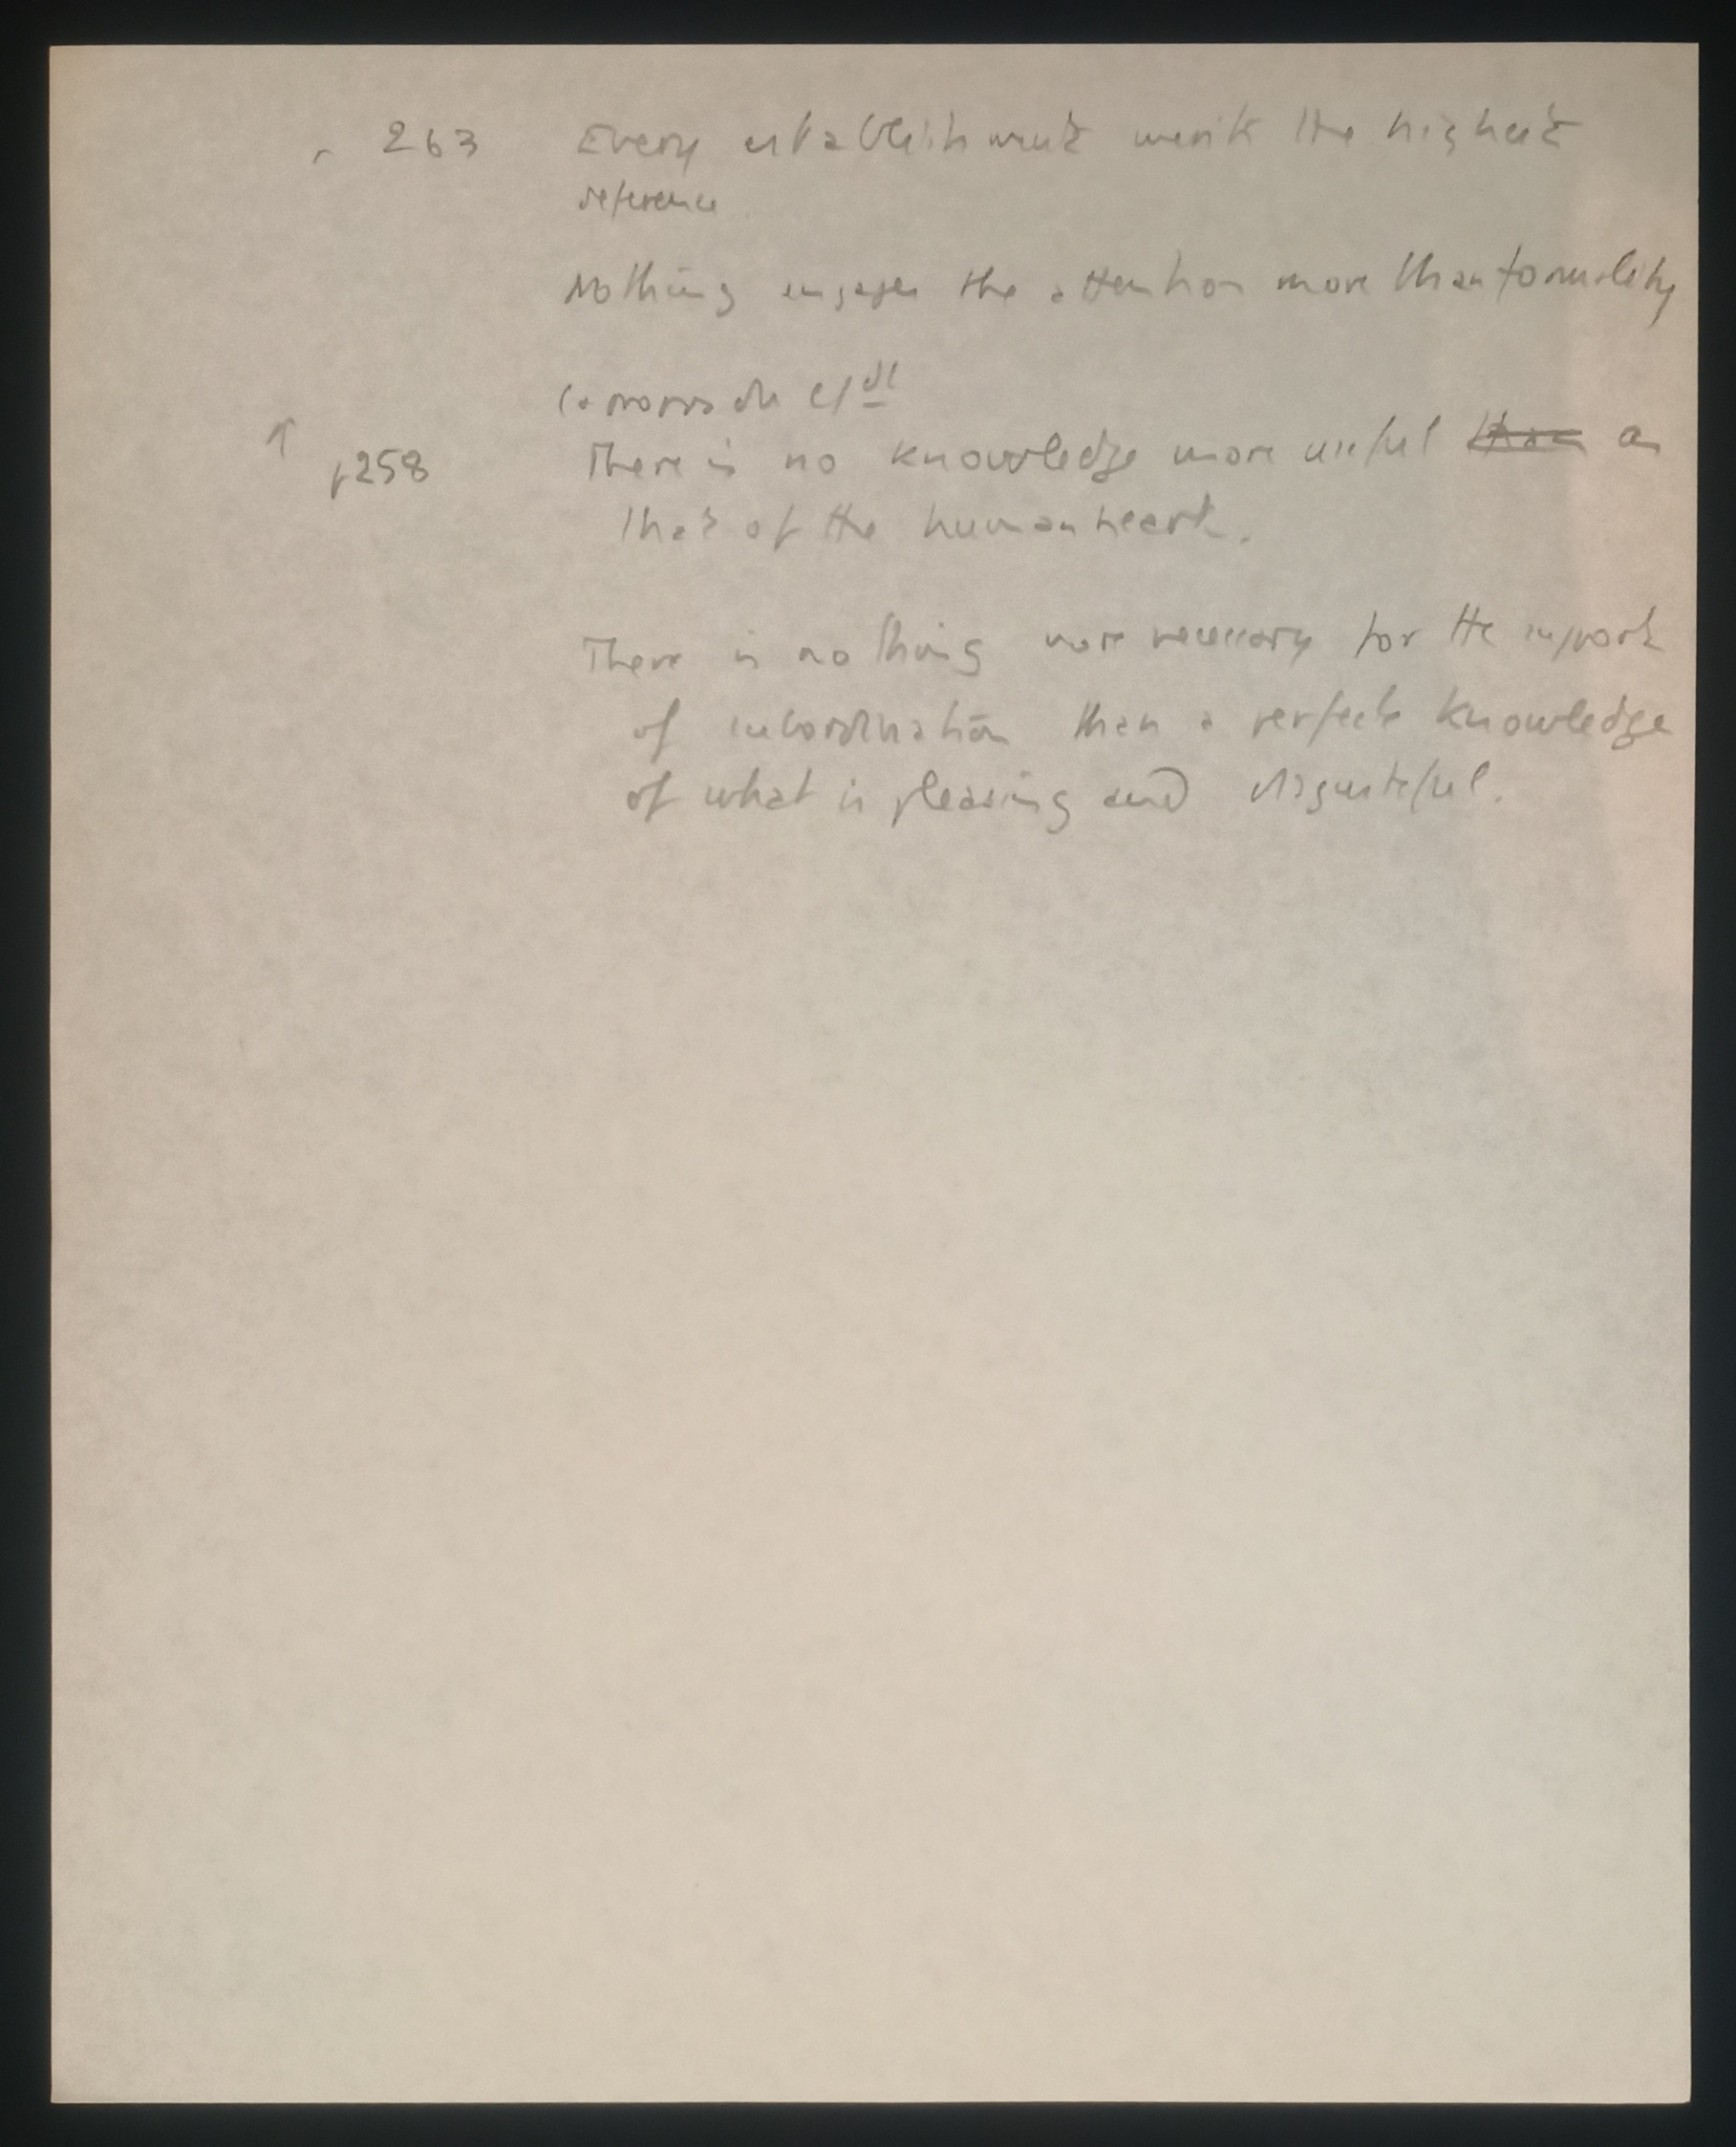 263 Every establishment merits the highest
deference
Nothing engages the attention more than formality
p258 There is no knowledge more useful than as
that of the human heart.
There is nothing more necessary for the support
of subordination than a perfect knowledge
of what is pleasing and disgustful.